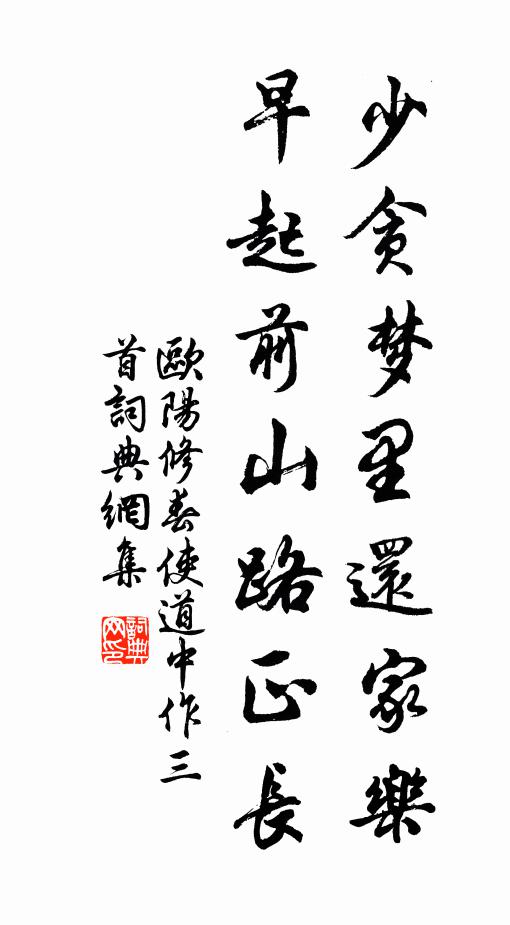 少贪梦里還家樂
早起前山路正長
歐陽修奉使道中作三
首詞典網集
詞典網印